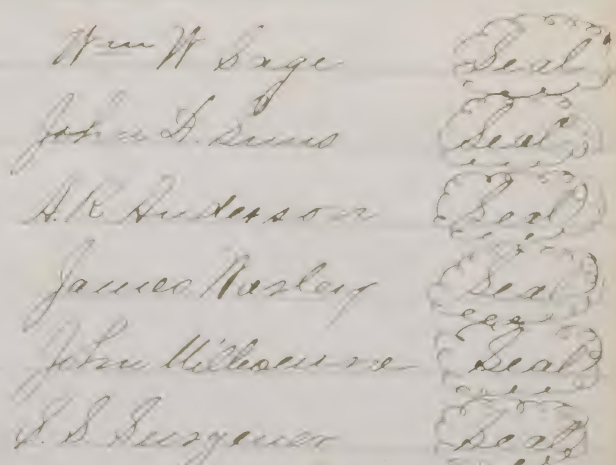 Wm W Sage Seal
John D. Sims Seal
A. R. Anderson Seal
James Wasley Seal
John Milbourne Seal
S. S. Surgener Seal